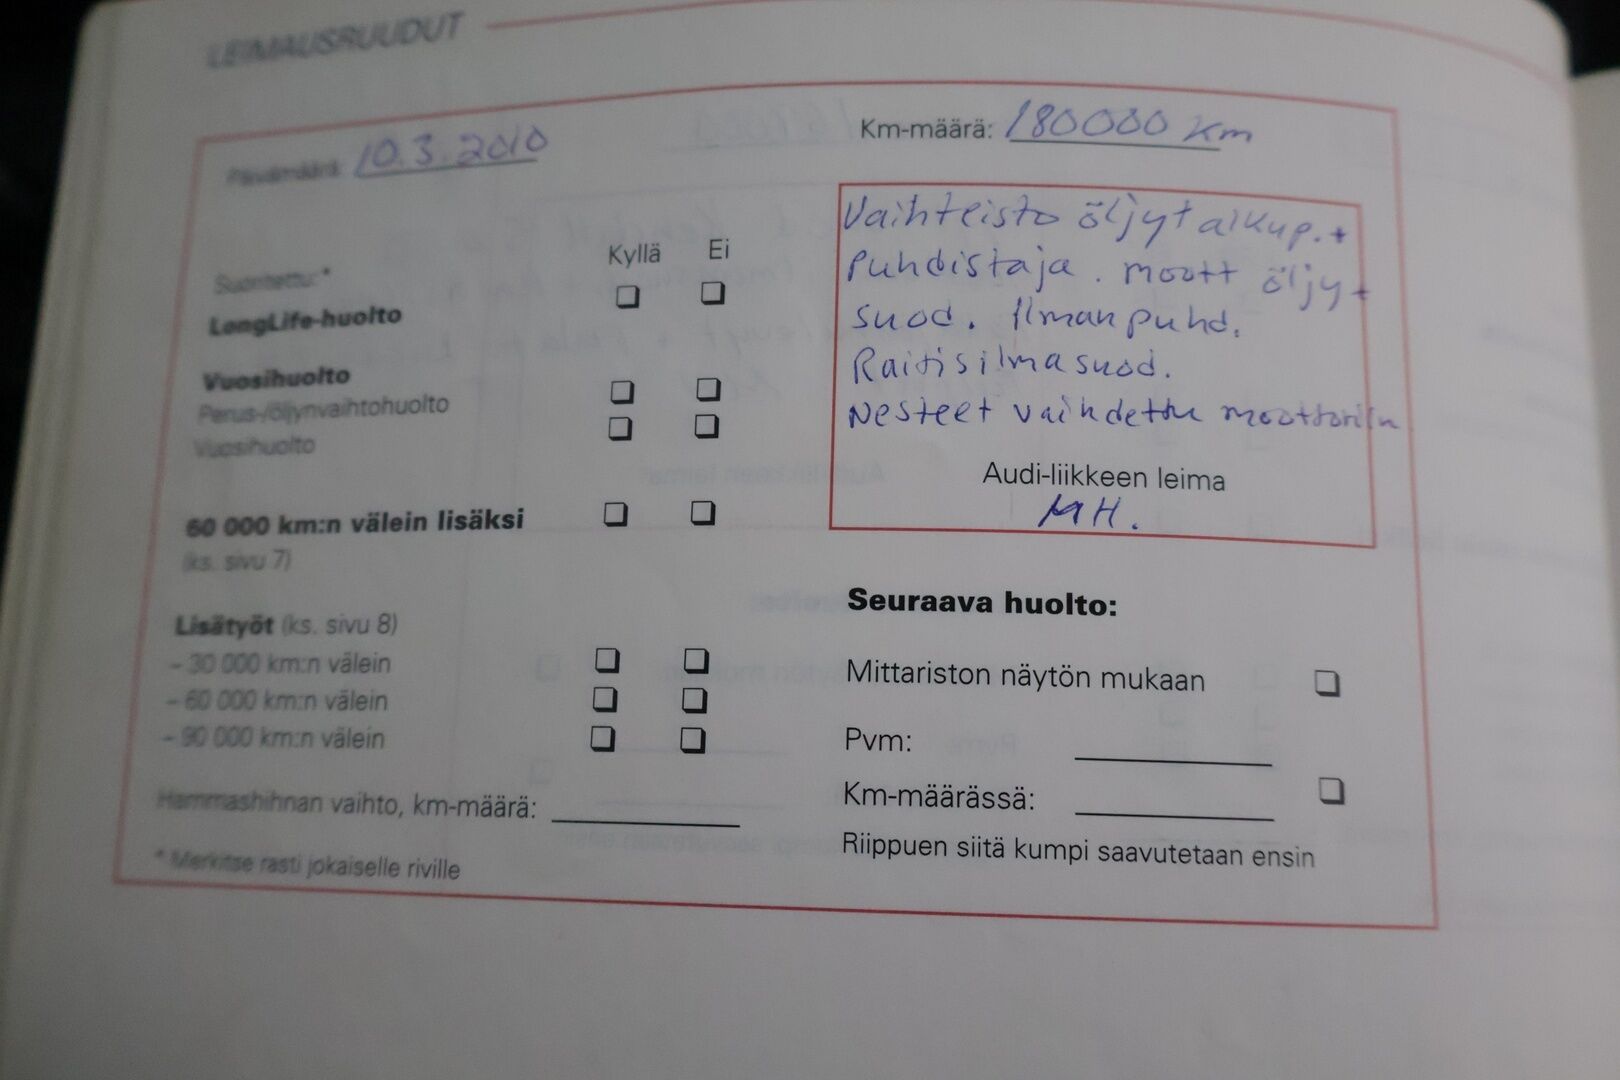 LEIMAUSRUUDUT
Päivämäärä: 10.3.2010
Km-määrä: 180000 Km
Kyllä Ei
Suoritettu:*
LongLife-huolto
Vuosihuolto
Perus-/öljynvaihtohuolto
Vuosihuolto
60 000 km:n välein lisäksi
(ks. sivu 7)
Lisätyöt (ks. sivu 8)
– 30 000 km:n välein
– 60 000 km:n välein
– 90 000 km:n välein
Hammashihnan vaihto, km-määrä:
* Merkitse rasti jokaiselle riville
Vaihteisto öljyt alkup. +
Puhdistaja. moott öljy +
suod. Ilmanpuhd.
Raitisilmasuod.
Nesteet vaihdettu moottoriin
Audi-liikkeen leima
MH.
Seuraava huolto:
Mittariston näytön mukaan
Pvm:
Km-määrässä:
Riippuen siitä kumpi saavutetaan ensin